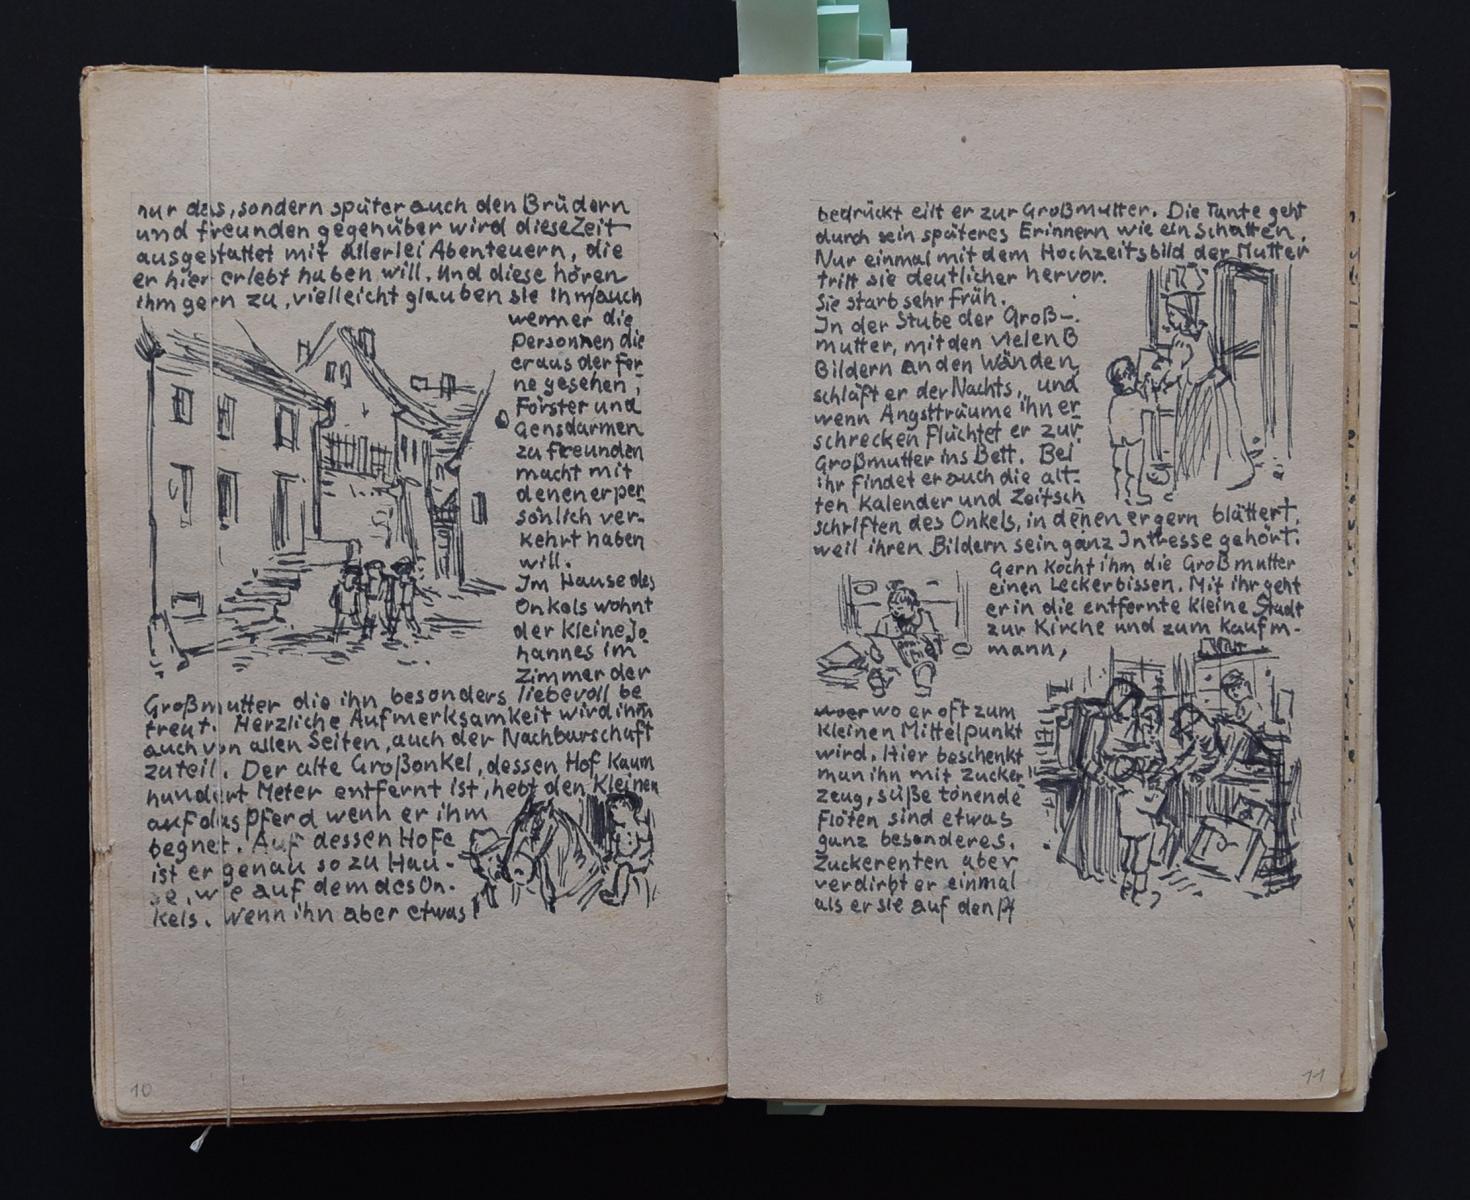 nur das, sondern später auch den Brüdern
und freunden gegenüber wird diese Zeit
ausgestattet mit allerlei Abenteuern, die
er hier erlebt haben will. Und diese hören
ihm gern zu, vielleicht glauben sie ihm auch
wenner die
Personnen die
er aus der Fer
ne gesehen,
Förster und
Gensdarmen
zu freunden
macht mit
denen er per
sönlich ver-
kehrt haben
will.
Im Hause des
Onkels wohnt
der kleine Jo
hannes im
Zimmer der
Großmutter die ihn besonders liebevoll be
treut. Herzliche Aufmerksamkeit wird ihm
auch von allen Seiten, auch der Nachbarschaft
zuteil. Der alte Großonkel, dessen Hof kaum
hundert Meter entfernt ist, hebt den Kleinen
auf das Pferd wenn er ihm
begnet. Auf dessen Hofe
ist er genau so zu Hau-
se, wie auf dem des On-
kels. Wenn ihn aber etwas
10
bedrückt eilt er zur Großmutter. Die Tante geht
durch sein späteres Erinnern wie ein Schatten.
Nur einmal mit dem Hochzeitsbild der Mutter
tritt sie deutlicher hervor.
Sie starb sehr früh.
In der Stube der Groß-
mutter, mit den vielen B
Bildern an den Wänden,
schläft er der Nachts, und
wenn Angstträume ihn er
schrecken flüchtet er zur
Großmutter ins Bett. Bei
ihr findet er auch die alt-
ten Kalender und Zeitsch
schriften des Onkels, in denen er gern blättert,
weil ihren Bildern sein ganz Intresse gehört.
Gern kocht ihm die Großmutter
einen Leckerbissen. Mit ihr geht
er in die entfernte kleine Stadt
zur Kirche und zum Kaufm-
mann,
wo er oft zum
kleinen Mittelpunkt
wird. Hier beschenkt
man ihn mit Zucker
zeug, süße tönende
Flöten sind etwas
ganz besonderes.
Zuckerenten aber
verdirbt er einmal
als er sie auf den Pf
11